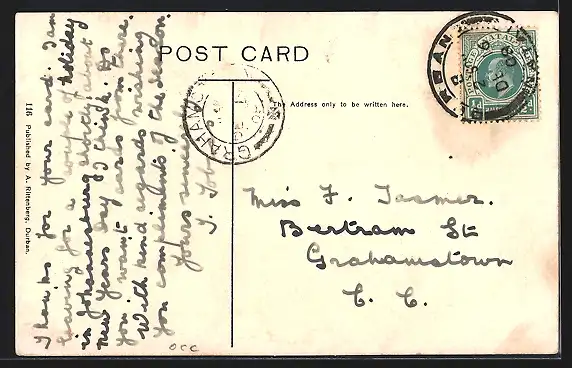 POST CARD
The Address only to be written here.
Thanks for your card. I am
leaving for a couple of holiday
in Johannesburg abiut about
new Years day I think. As
you want cards from there.
With kind regards wishing
you compliments of the season.
Yours sincerely
T.
Miss F. Tasmer.
Bertram St
Grahamstown
C. C.
116 Published by A. Rittenberg, Durban.
DURBAN
GRAHAM
occ